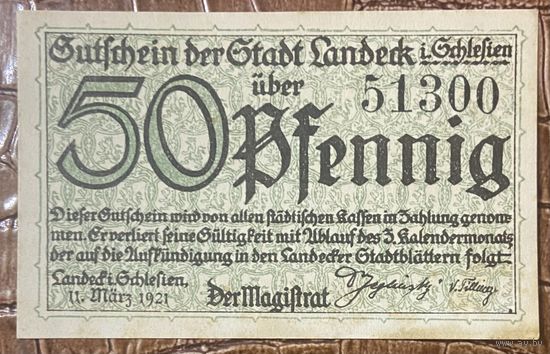 Gutschein der Stadt Landeck i. Schlesien
über 51300
50 Pfennig
Dieser Gutschein wird von allen städtischen Kassen in Zahlung genom-
men. Er verliert seine Gültigkeit mit Ablauf des 3. Kalendermonats
der auf die Aufkündigung in den Landecker Stadtblättern folgt.
Landeck i. Schlesien,
11. März 1921
Der Magistrat